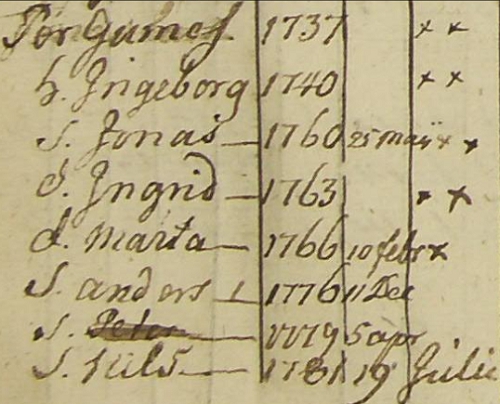 Per Gumes 1737 x x
h. Ingeborg 1740 x x
s. Jonas 1760 25 maij x x
d. Ingrid 1763 x x
d. Marta 1766 10 febr x
s. anders 1776 11 Dec
s. Peter 1779 5 apr
s. Nils 1781 19 Julii